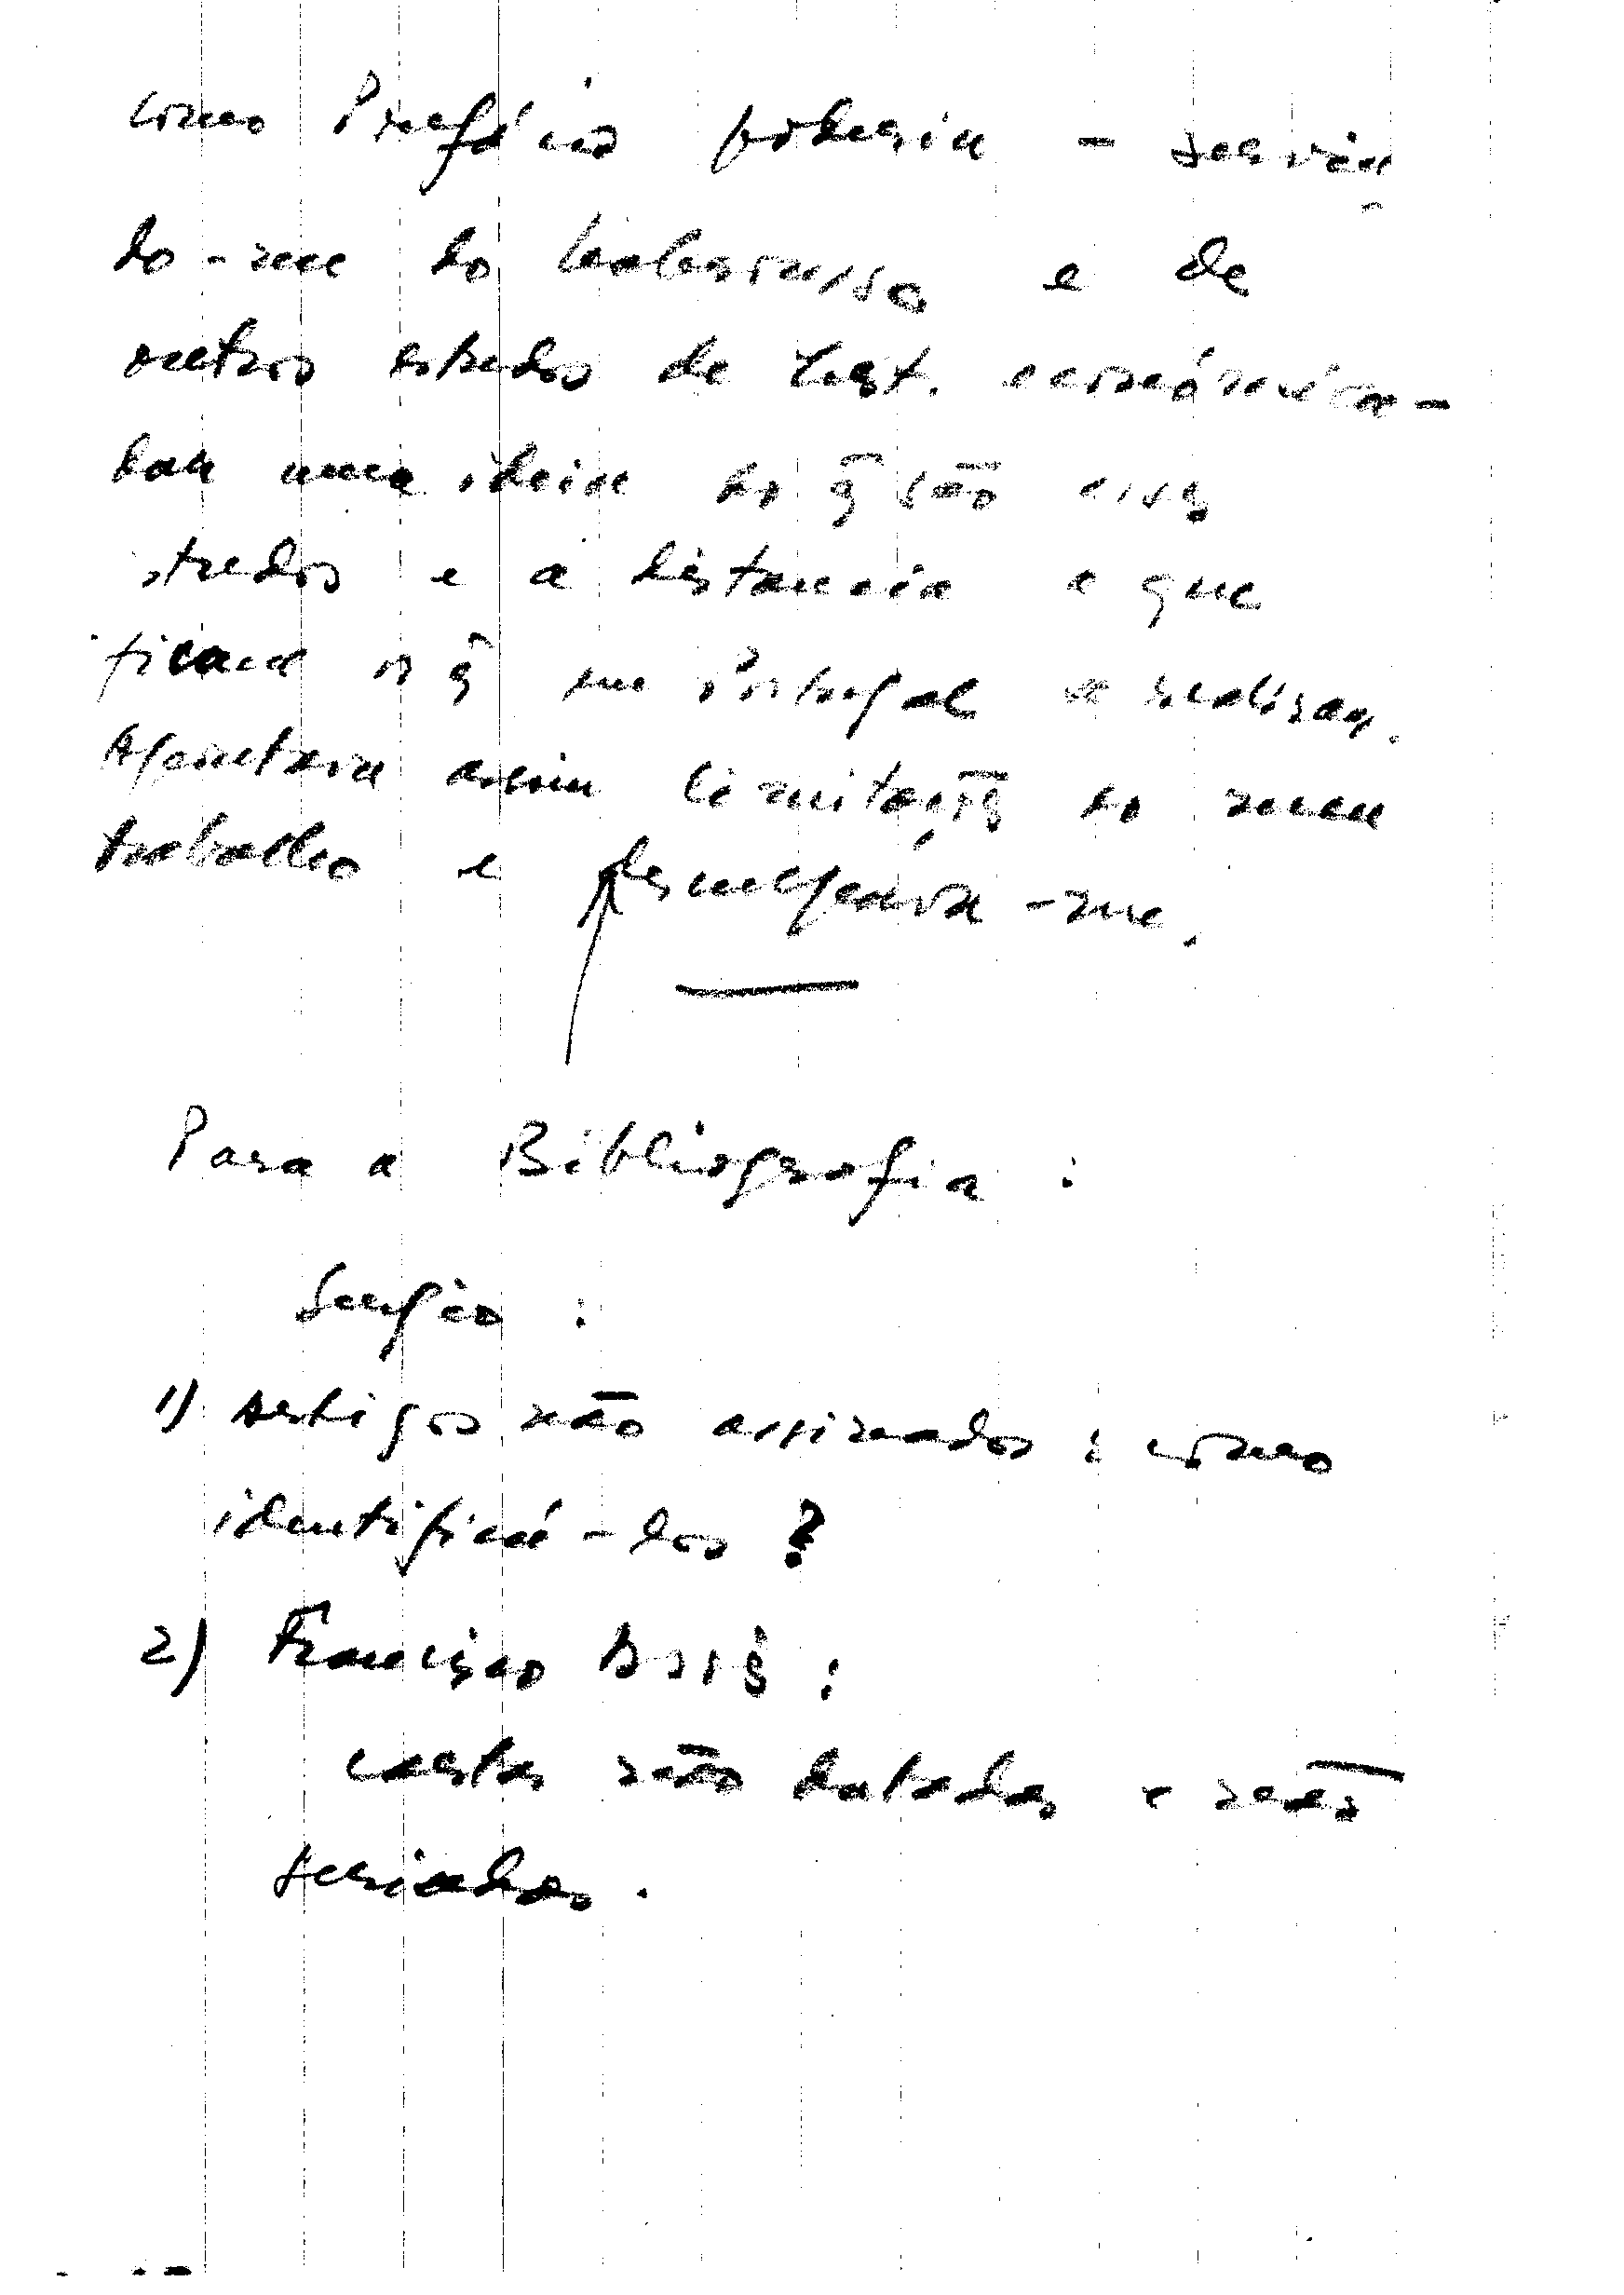 como Prefácio poderia - servin
do-me do Labrousse e de
outros estudos de hist. económica -
dar uma ideia do q̃ são esses
studos e a distancia a que
ficam os q̃ em Portugal se realizam.
Apontava assim limitações do meu
trabalho e desculpava-me.
Para a Bibliografia :
Sergio :
1) Artigos não assinados : como
identificá-los ?
2) Francisco Assis :
cartas não datadas e não
seriadas.